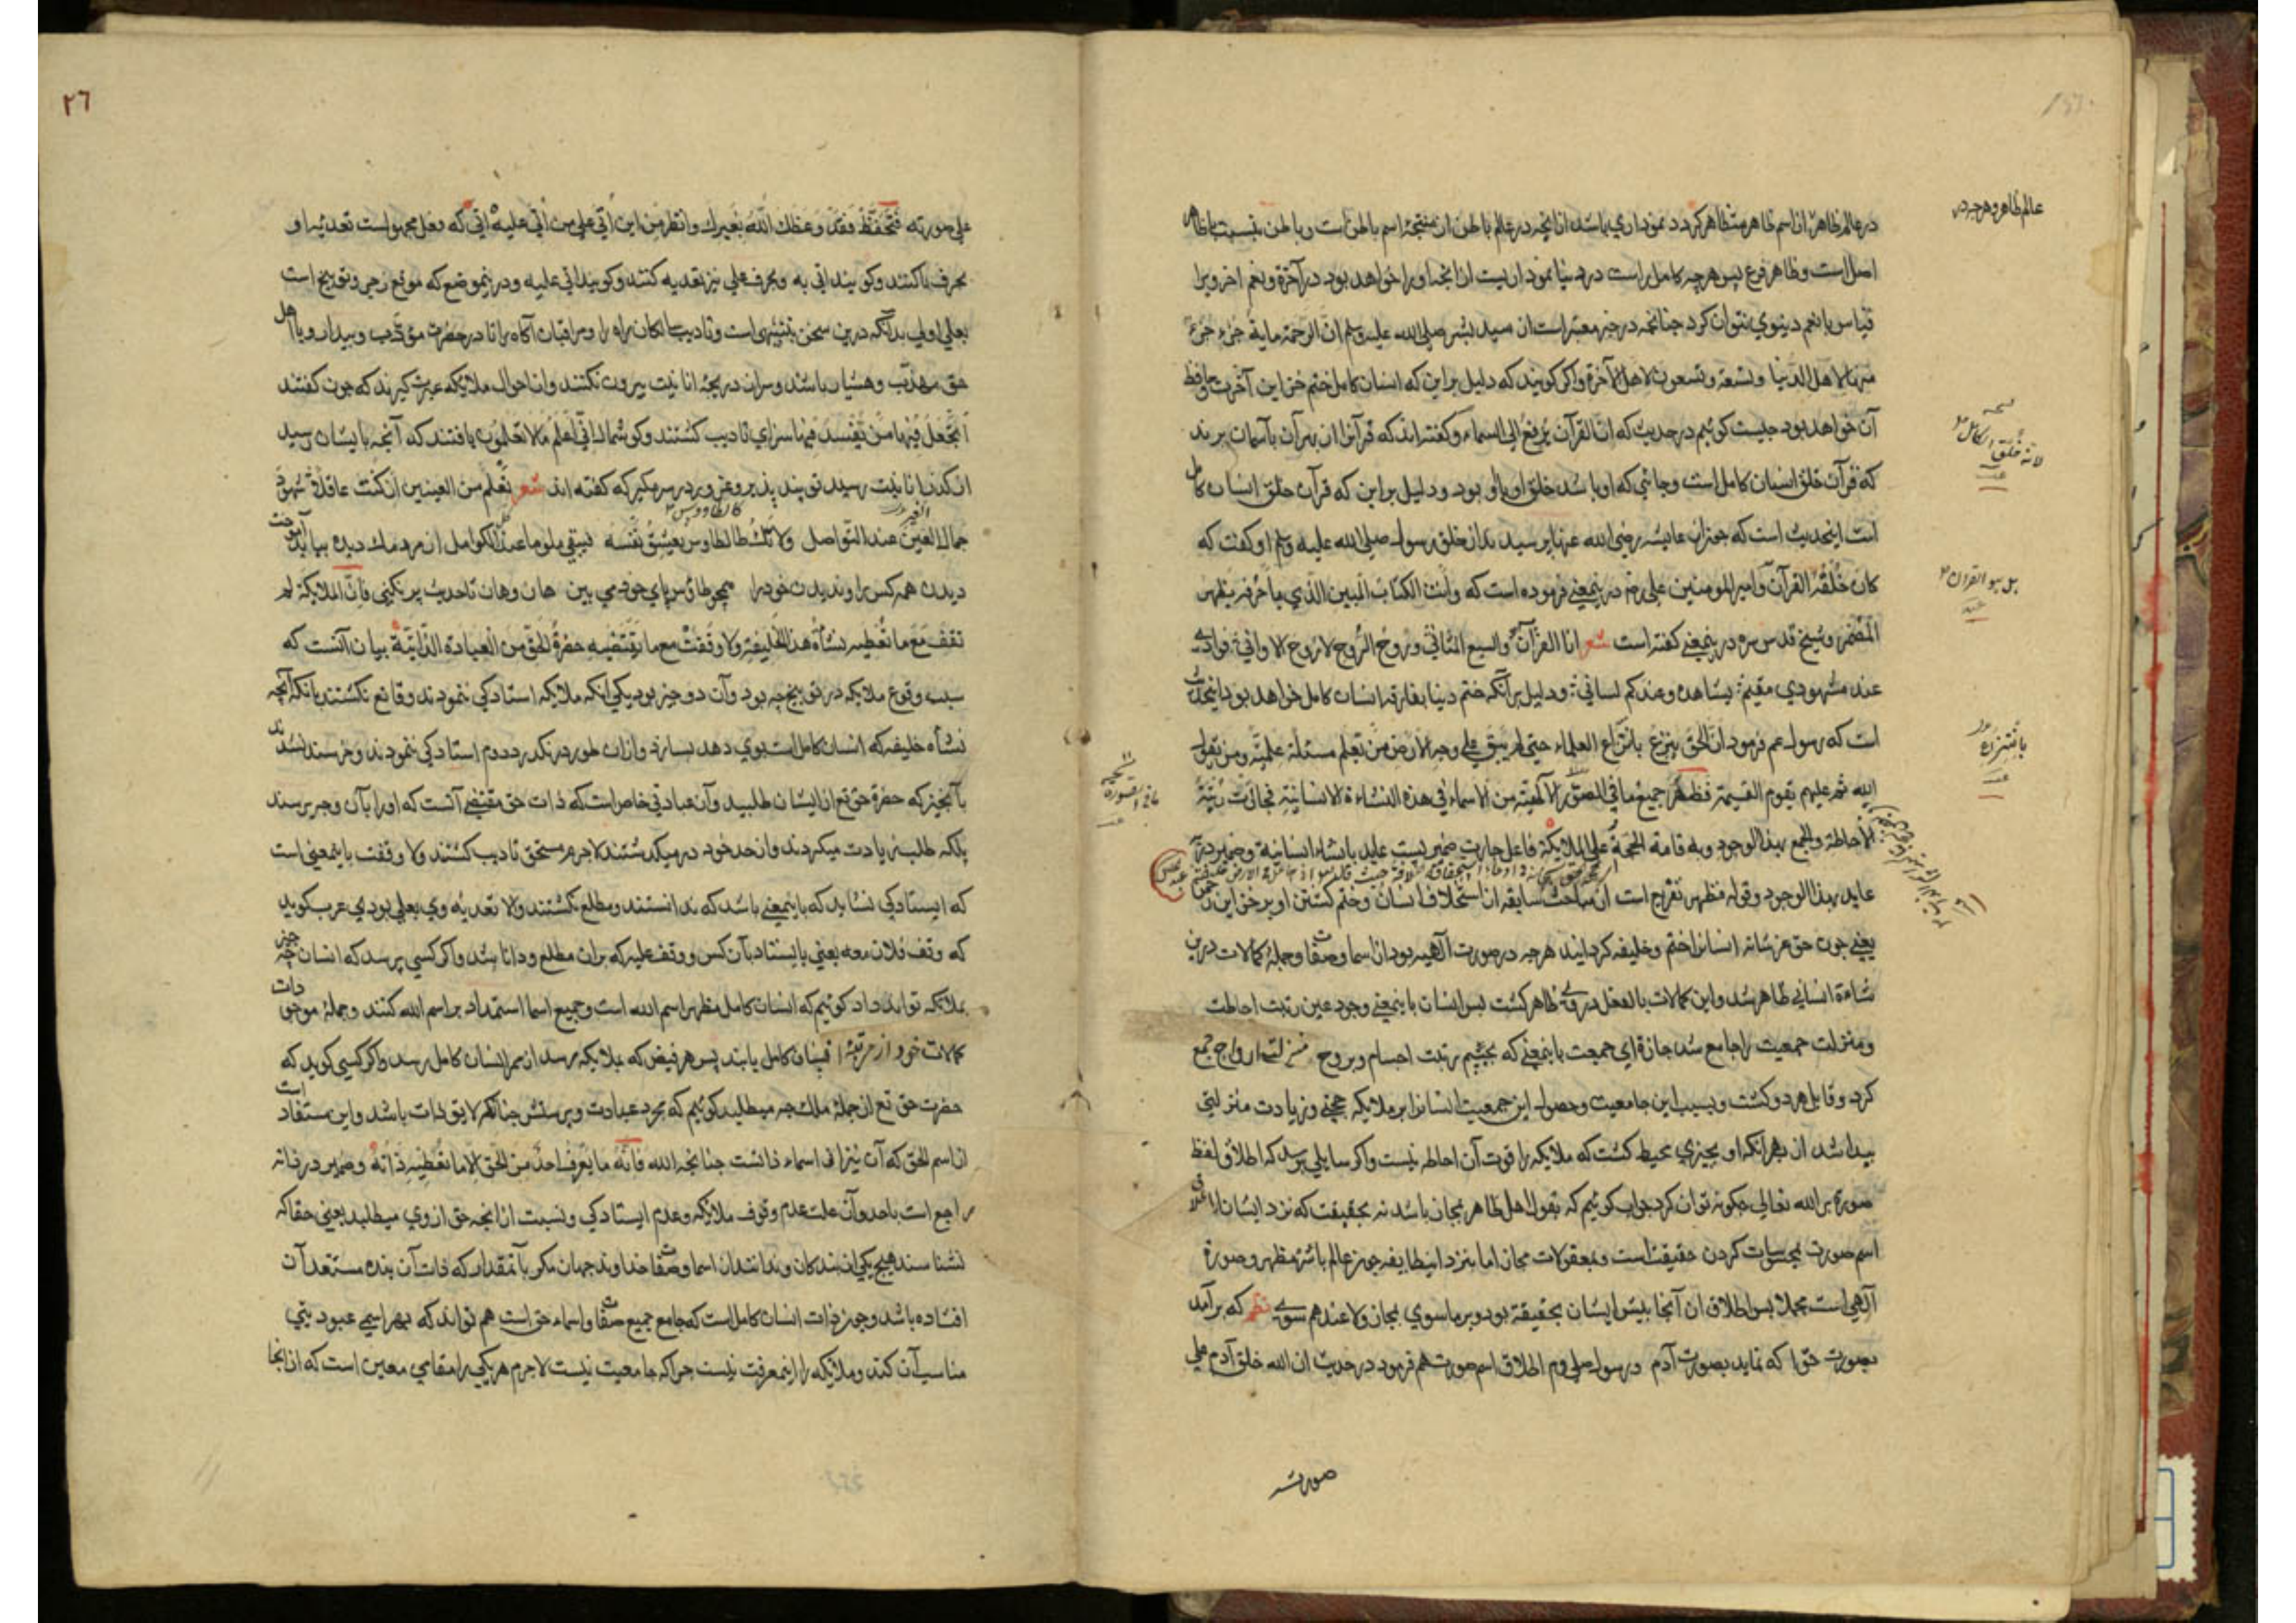 در عالم ظاهر از اسم ظاهر متظاهر کردد نموداری باشد از انچه در عالم باطن از نتیجهٔ اسم باطن است و باطن بنسبت با ظاهر
اصل است و ظاهر فرع پس هرچه کامل راست در دنیا نموداریست از آنچه او را خواهد بود در آخرة و نعم اخروی را
قیاس با نعم دینوی نتوان کرد چنانچه در خبر معتبر است از سید بشر صلی الله علیه وسلم ان الرحمة مایة جزء جزء
منها لاهل الدنیا وتسعة وتسعون لاهل الآخرة واکر کویند که دلیل بر این که انسان کامل ختم خزاین آخرت و حافظ
آن خواهد بود چیست کوئیم در حدیث که ان القرآن یرفع الی السماء و کفته اند که قرآنرا از بهر آن بآسمان برند
که قرآن خلق انسان کامل است و جائی که او باشد خلق او باو بود و دلیل بر این که قرآن خلق انسان کامل
است اینحدیث است که چون از عایشه رضی الله عنها پرسیدند از خلق رسول صلی الله علیه وسلم او کفت که
کان خلقه القرآن و امیر المومنین علی رض درینمعنی فرموده است که وانت الکتاب المبین الذی باحرفه یظهر
المضمر و شیخ قدس سره درینمعنی کفته است شعر انا القرآن والسبع المثانی وروح الروح لا روح الاوانی فوادی
عند مشهودی مقیم یشاهده وعندکم لسانی و دلیل برآنکه ختم دنیا بمفارقت انسان کامل خواهد بود اینحدیث
است که رسول عم فرمود ان الحق ینزع بانتزاع العلماء حتی لم یبق علی وجه الارض من تعلم مسئلة علمیة ومن یقول
الله ثم علیهم تقوم القیمة فظهر جمیع ما فی الصور الالهیة من الاسماء فی هذه النشاءة الانسانیة فحازت رتبة
الاحاطة والجمع بهذا الوجود وبه قامت الحجة علی الملائکة فاعل حازت ضمیریست عاید بانشاء انسانیة و ضمیر در به
عاید بهذا الوجود و قوله فظهر تفرج است از مباحث سابقه از استخلاف انسان و ختم کشتن او بر خزاین
یعنی چون حق عز شانه انسانرا ختم و خلیفه کردانید هرچه در صورت آلهیه بود از اسما وصفات و جملهٔ کمالات درین
نشاءة انسانی ظاهر شد و این کمالات بالفعل در وی ظاهر کشت پس انسان باینمعنی وجود عین رتبت احاطت
و منزلت جمعیت را جامع شد حازة ای جمعت باینمعنی که بجسم رتبت اجسام و بروح منزلت ارواح جمع
کرد و قابل هردو کشت و بسبب این جامعیت و حصول این جمعیت انسانرا بر ملایکه حجتی و زیادت منزلتی
پیدا شد از بهر آنکه او بچیزی محیط کشت که ملایکه را قوت آن احاطه نیست و اکر سایلی پرسد که اطلاق لفظ
صورة بر الله تعالی چکونه توان کرد جواب کوئیم که بقول اهل ظاهر بمجاز باشد نه بحقیقت که نزد ایشان اطلاق
اسم صورت بمحسوسات کردن حقیقت است و بمعقولات مجاز اما بنزد اینطایفه چون عالم باشره مظهر و صورة
آلهی است مجملا پس اطلاق آن آنجا پیش ایشان بحقیقة بود و بر ماسوی بمجاز ولا عندهم سوی نظم که برآمد
بصورت حق ا که نماید بصورت آدم و رسول صلی وم اطلاق اسم صورت هم فرمود در حدیث ان الله خلق آدم علی
صورته
عالم ظاهر و هرچه در
نسخه
لانه خلق الکامل
بل هو القرآن
عبد
باشره
ما فی الصورة
٢٦
علی صورته فتحفظ فقد وعظک الله بغیرک وانظر من این اتی علی من اتی علیه اتی که فعل مجهول است تعدیهٔ او
بحرف با کنند و کویند اتی به و بحرف علی نیز تعدیه کنند و کویند اتی علیه و درینموضع که موقع زجر و توبیخ است
بعلی اولی بدانکه درین سخن تنبیهی است و تادیب سالکان راه را و مراقبان آکاه را تا در حضرت مؤدب و بیدار و با اهل
حق مهذب و هشیار باشند و سر از دریچهٔ انانیت بیرون نکنند و از احوال ملایکه عبرت کیرند که چون کفتند
أتجعل فیها من یفسد فیها سزای تادیب کشتند و کوشمال انی اعلم ما لا تعلمون یافتند که آنچه بایشان رسید
از کدر انانیت رسید تو پند پذیر و غرور در سر مکیر که کفته اند شعر تعلم من العینین ان کنت عاقلا شهود
جمال الغیر عند التواصل ولا تک کالطاوس یعشق نفسه فیبقی ملوما عند الکوامل از مردمک دیده بباید آموخت
دیدن همه کس را و ندیدن خود را همچو طاؤس پای خود می بین هان و هان تا حدیث پر نکنی فان الملایکة لم
تقف مع ما تعطیه نشأة هذا الخلیفة ولا وقفت مع ما تقتضیه حضرة الحق من العبادة الذاتیة بیان آنست که
سبب وقوع ملایکه در توبیخ چه بود و آن دو چیز بود یکی انکه ملایکه استادکی ننمودند و قانع نکشتند بانکه آنچه
نشأة خلیفه که انسان کامل است بوی دهد بسازد و از آن طور درنکذرد دوم استادکی ننمودند و خرسند نشدند
بآنچیز که حضرة حق تع از ایشان طلبید و آن عبادتی خاص است که ذات حق مقتضی آنست که او را بآن وجه پرستند
بلکه طلب زیادت میکردند و از حد خود درمیکذشتند لاجرم مستحق تادیب کشتند ولا وقفت باینمعنی است
که ایستادکی نشاید که باینمعنی باشد که ندانستند و مطلع نکشتند ولا تعدیهٔ وی بعلی بودی عرب کوید
که وقف فلان معه یعنی بایستاد بآن کس و وقف علیه که بران مطلع و دانا شد و اکر کسی پرسد که انسان چه چیز
بملایکه تواند داد کوئیم که انسان کامل مظهر اسم الله است و جمیع اسما استمداد بر اسم الله کنند و جملهٔ موجودات
کمالات خود از مرتبهٔ انسان کامل یابند پس هر فیض که بملایکه برسد از ممر انسان کامل رسد و اکر کسی کوید که
حضرت حق تع از جملهٔ ملک چه میطلبد کوئیم که مجرد عبادت و پرستش چنانکه لایق ذات باشد و این مستفاد است
از اسم الحق که آن نیز از اسماء ذاتست چنانچه الله فانه ما یعرف احد من الحق الا ما تعطیه ذاته و ضمیر در ذاته
راجع است باحد و آن علت عدم وقوف ملایکه و عدم ایستادکی و نسبت ازانچه حق از وی میطلبد یعنی حقا که
نشناسند هیچ یکی از بندکان و ندانند از اسما وصفات خداوند جهان مکر بآنمقدار که ذات آن بنده مستعد آن
افتاده باشد و چون ذات انسان کامل است که جامع جمیع صفات و اسماء حق است هم تواند که بهر اسمی عبودیتی
مناسب آن کند و ملایکه را اینمعرفت نیست چرا که جامعیت نیست لاجرم هر یکی را مقامی معین است که از آنجا